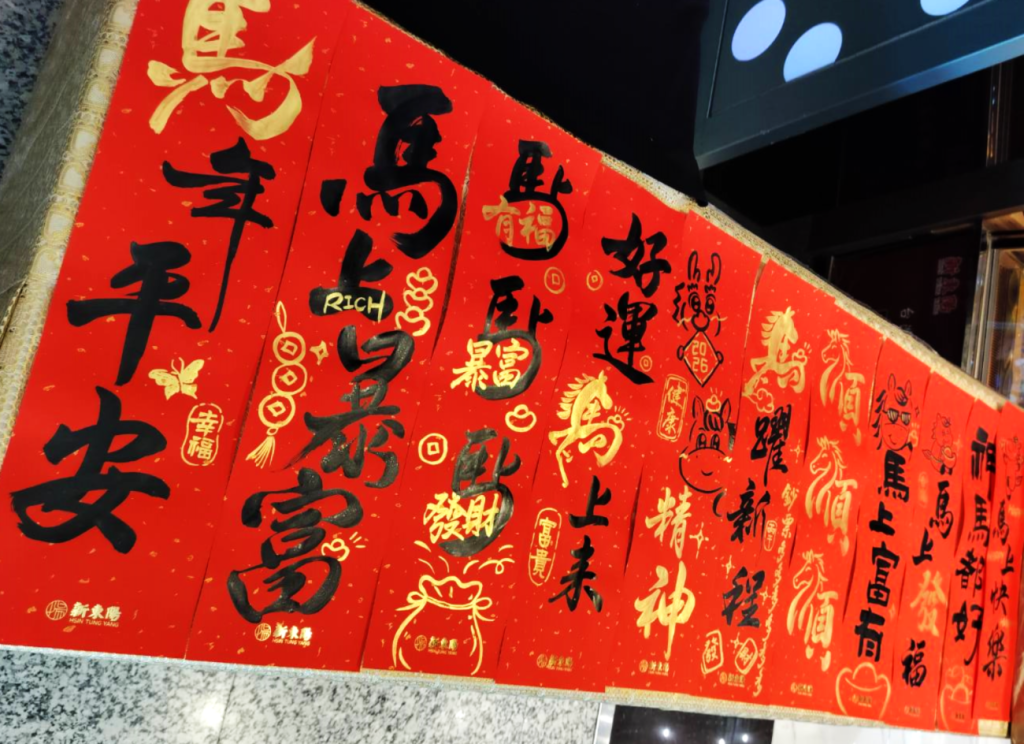 馬年平安
幸福
新東陽
HSIN TUNG YANG
馬上暴富
RICH
新東陽
HSIN TUNG YANG
馬上
有福
馬上
暴富
馬上
發財
新東陽
好運馬上来
富貴
新東陽
2026
健康
精神
新東陽
馬躍新程
順
順
順
馬上富有
馬上發福
馬上快樂